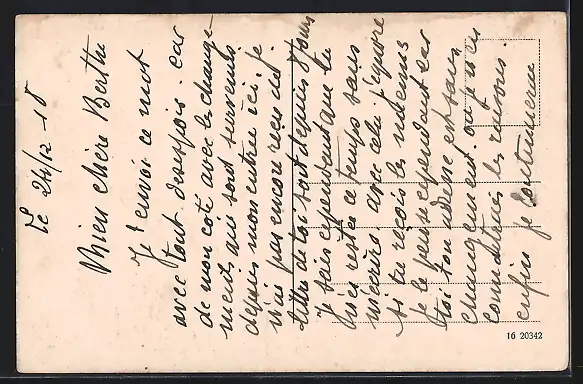 Le 24/12-18
Mien chère Berthe
Je t'envoi ce mot
avec tout desespois car
de mon coté avec les change-
ments qui sont survenus
depuis mon entrée ici, je
n'ai pas encore reçu de
lettre de toi soit depuis 8 jours
Je sais cependant que tu
n'ais restée ce temps sans
m'ecrire avec cela j'ignore
si tu reçois les miennes
Je le pense cependant car
toi ton adresse est sans
changement ou je vien
connaitras les raisons
enfin je continuerai
16 20342